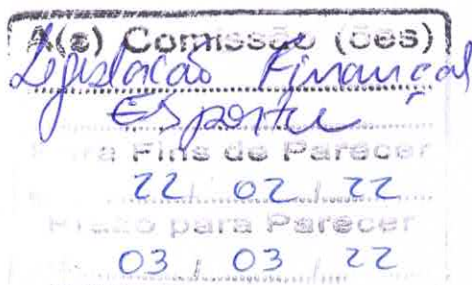 A(s) Comissão (ões)
Legislação Finanças
Esporte
Para Fins de Parecer
22 / 02 / 22
Prazo para Parecer
03 / 03 22